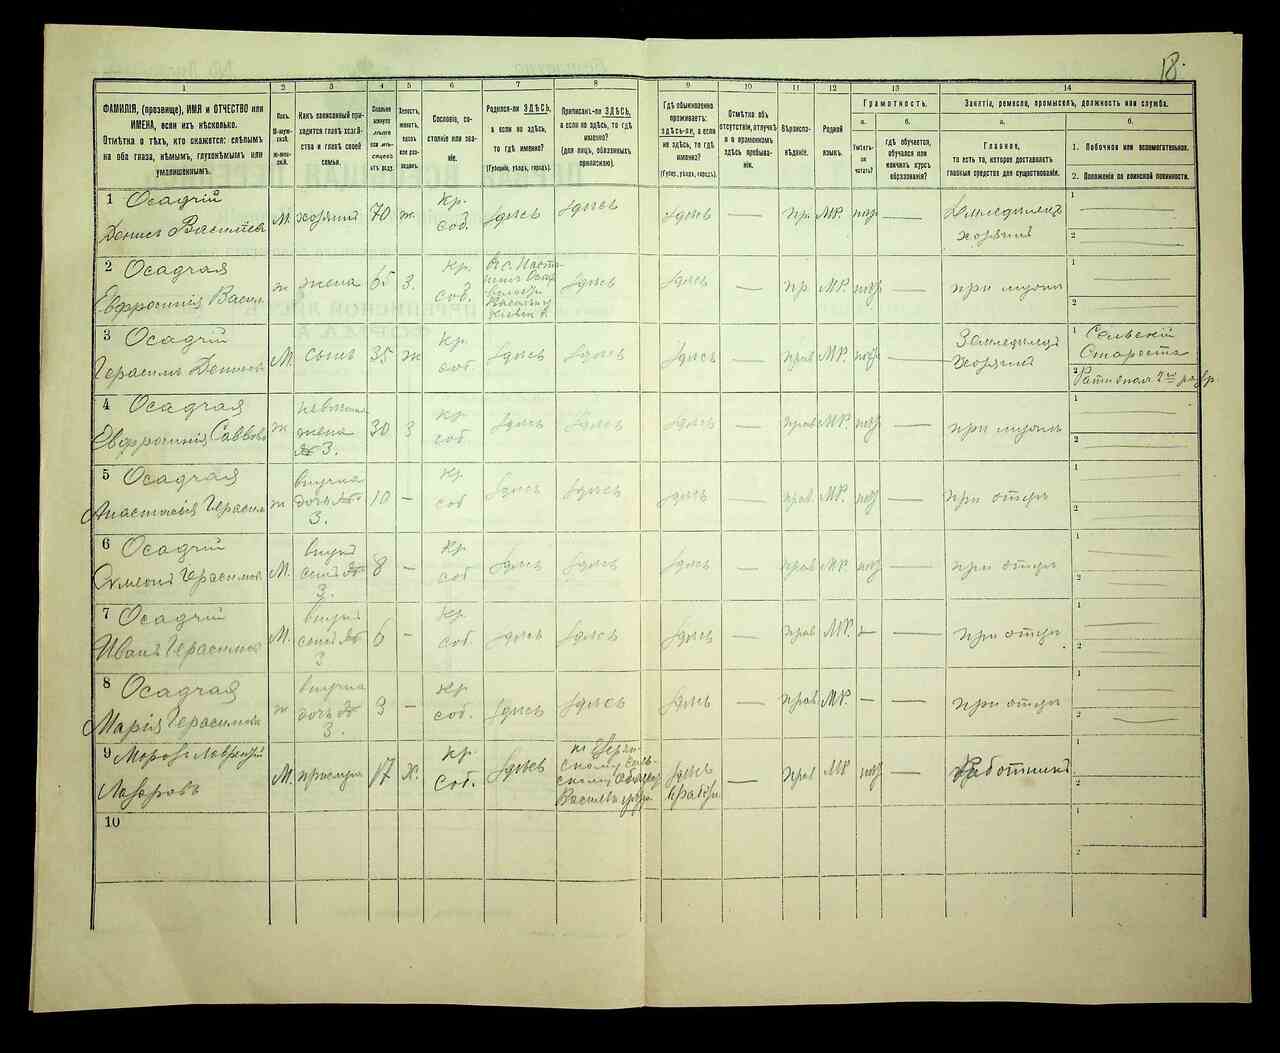 18.
1
2
3
4
5
6
7
8
9
10
11
12
13
14
ФАМИЛІЯ, (прозвище), ИМЯ и ОТЧЕСТВО или
ИМЕНА, если ихъ нѣсколько.
Отмѣтка о тѣхъ, кто окажется: слѣпымъ
на оба глаза, нѣмымъ, глухонѣмымъ или
умалишеннымъ.
Полъ.
М-муж-
ской.
Ж-жен-
скій.
Какъ записанный при-
ходится главѣ хозяй-
ства и главѣ своей
семьи.
Сколько
минуло
лѣтъ
или мѣся-
цевъ
отъ роду.
Холостъ,
женатъ,
вдовъ
или раз-
веденъ.
Сословіе, со-
стояніе или зва-
ніе.
Родился-ли ЗДѢСЬ,
а если не здѣсь,
то гдѣ именно?
(Губернія, уѣздъ, городъ).
Приписанъ-ли ЗДѢСЬ,
а если не здѣсь, то гдѣ
именно?
(для лицъ, обязанныхъ
припискою).
Гдѣ обыкновенно
проживаетъ:
здѣсь-ли, а если
не здѣсь, то гдѣ
именно?
(Губер., уѣздъ, городъ).
Отмѣтка объ
отсутствіи, отлучкѣ
и о временномъ
здѣсь пребыва-
ніи.
Вѣроиспо-
вѣданіе.
Родной
языкъ.
Грамотность.
а.
б.
Умѣетъ-ли
читать?
Гдѣ обучается,
обучался или
кончилъ курсъ
образованія?
Занятіе, ремесло, промыселъ, должность или служба.
а.
б.
Главное,
то есть то, которое доставляетъ
главныя средства для существованія.
1. Побочное или вспомогательное.
2. Положеніе по воинской повинности.
1 Осадчій
Денисъ Васильевъ
М. хозяинъ 70 ж. Кр. соб. здѣсь здѣсь здѣсь — Пр. МР. — Земледѣлецъ хозяинъ
1
2
2 Осадчая
Евфросинія Васил.
ж жена 65 З. Кр. соб. здѣсь здѣсь — пр МР. — при мужѣ
1
2
3 Осадчій
Герасимъ Денисовъ
М. сынъ 35 ж Кр. соб. здѣсь здѣсь здѣсь — прав МР. — Земледѣлецъ Хозяинъ
1 Сельскій
Староста
2 Ратникъ 2го разр.
4 Осадчая
Евфросинія Саввова
ж невѣстка жена 3. 30 З Кр. соб. здѣсь здѣсь здѣсь — прав МР. — при мужѣ
1
2
5 Осадчая
Анастасія Герасим
ж внучка дочь 3. 10 — Кр. соб здѣсь здѣсь здѣсь — прав. МР. — при отцѣ
1
2
6 Осадчій
Симеонъ Герасимов
М. внукъ сынъ 3. 8 — Кр соб здѣсь здѣсь здѣсь — прав МР. — при отцѣ
1
2
7 Осадчій
Иванъ Герасимов
М. внукъ сынъ 3 6 — Кр. соб. здѣсь здѣсь здѣсь — прав МР. — — при отцѣ
1
2
8 Осадчая
Марія Герасимова
ж внучка дочь 3. 3 — Кр соб. здѣсь здѣсь здѣсь — прав МР. — — при отцѣ
1
2
9 Морозъ Лаврентій
Лазаровъ
М. прислуга 17 Х. Кр. соб. здѣсь здѣсь — прав МР — Работникъ
1
2
10
1
2